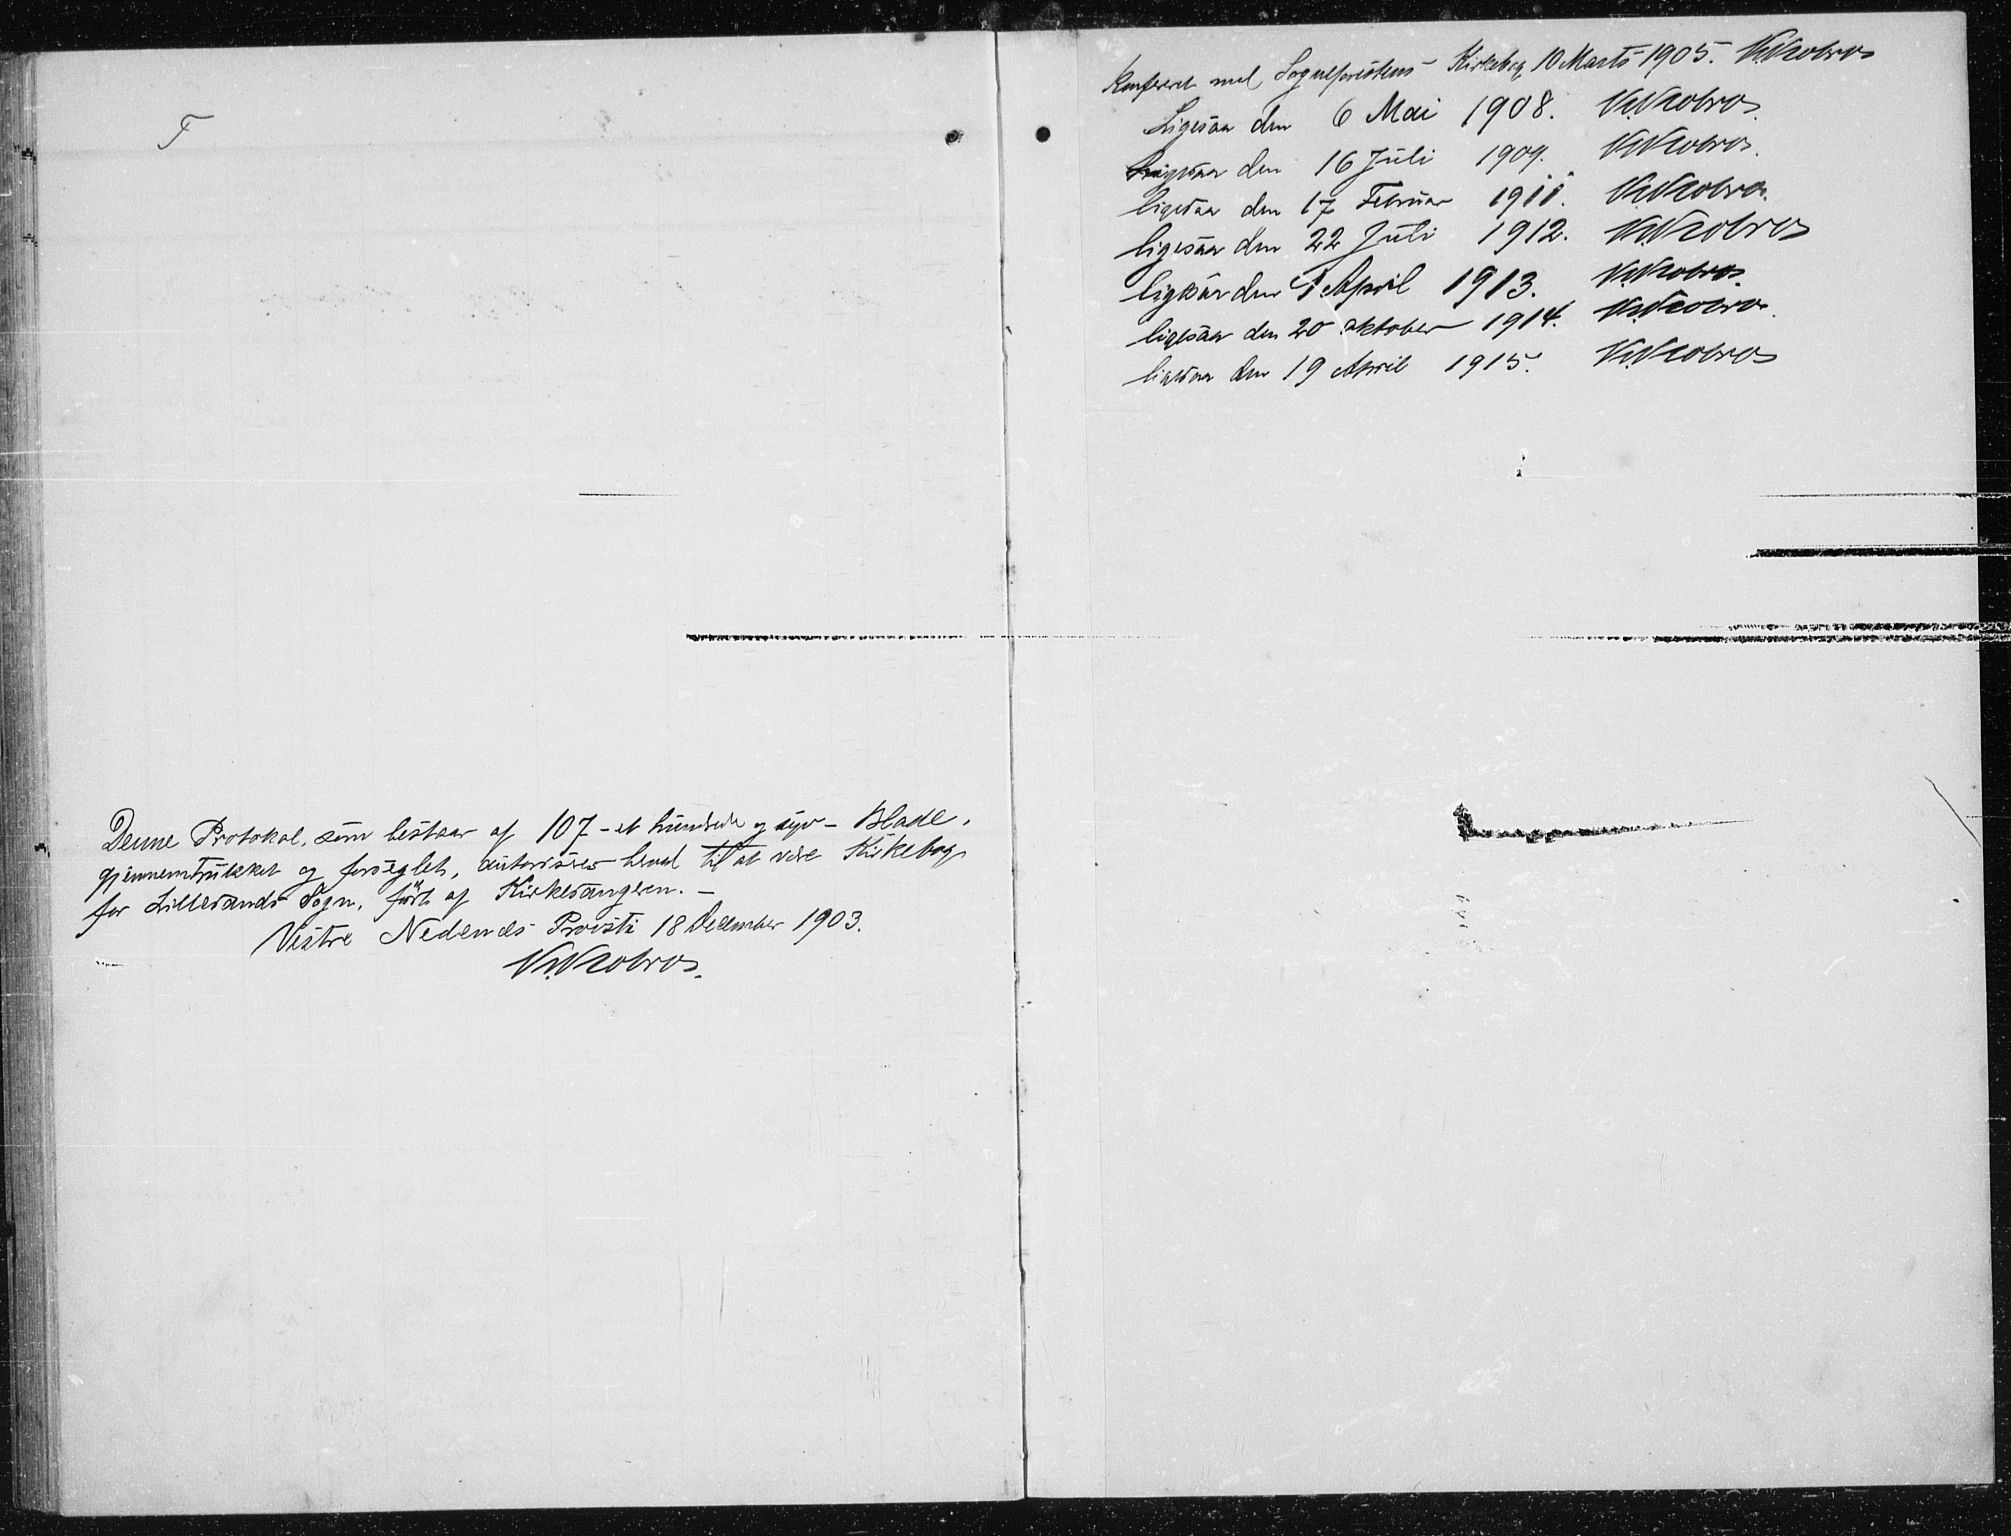 T
Denne Protokol, som bestaar af 107 - et hundrede og syv - Blade,
gjennemtrukket og forseglet, autoriseres herved til at være Kirkebog
for Lillesands Sogn, ført af Kirkesangeren. -
Vestre Nedenes Provsti 18 December 1903.
Konfereret med Sogneprestens Kirkebog 10 Marts 1905.
Ligesaa den 6 Mai 1908.
Ligesaa den 16 Juli 1909.
ligesaa den 17 Februar 1911.
ligesaa den 22 Juli 1912.
ligesaa den 1 April 1913.
ligesaa den 20 oktober 1914.
ligesaa den 19 April 1915.